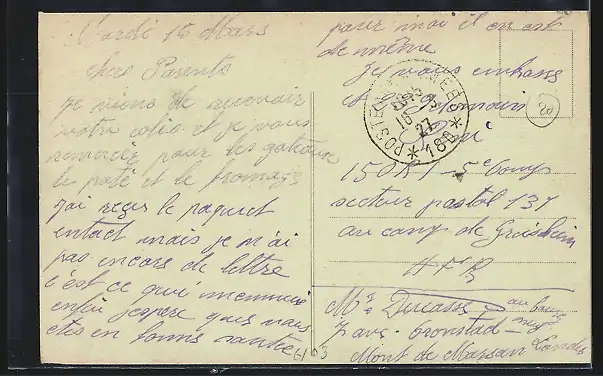 Mardi 15 Mars
chers Parents
je viens de recevoir
votre colis et je vous
remercie pour les gateaux
le paté et le fromage
j'ai reçu le paquet
entact mais je n'ai
pas encore de lettre
c'est ce qui m'ennuie
enfin j'espere que vous
etes en bonne santée
pour moi il en est
de même
Je vous embrasse
et
150 R I - 5e Comp
secteur postal 137
au camp de Griesheim
POSTE
27
* 180 *
Mr Ducasse au bourg
7 avs. Cronstad neuf
Mont de Marsan Landes